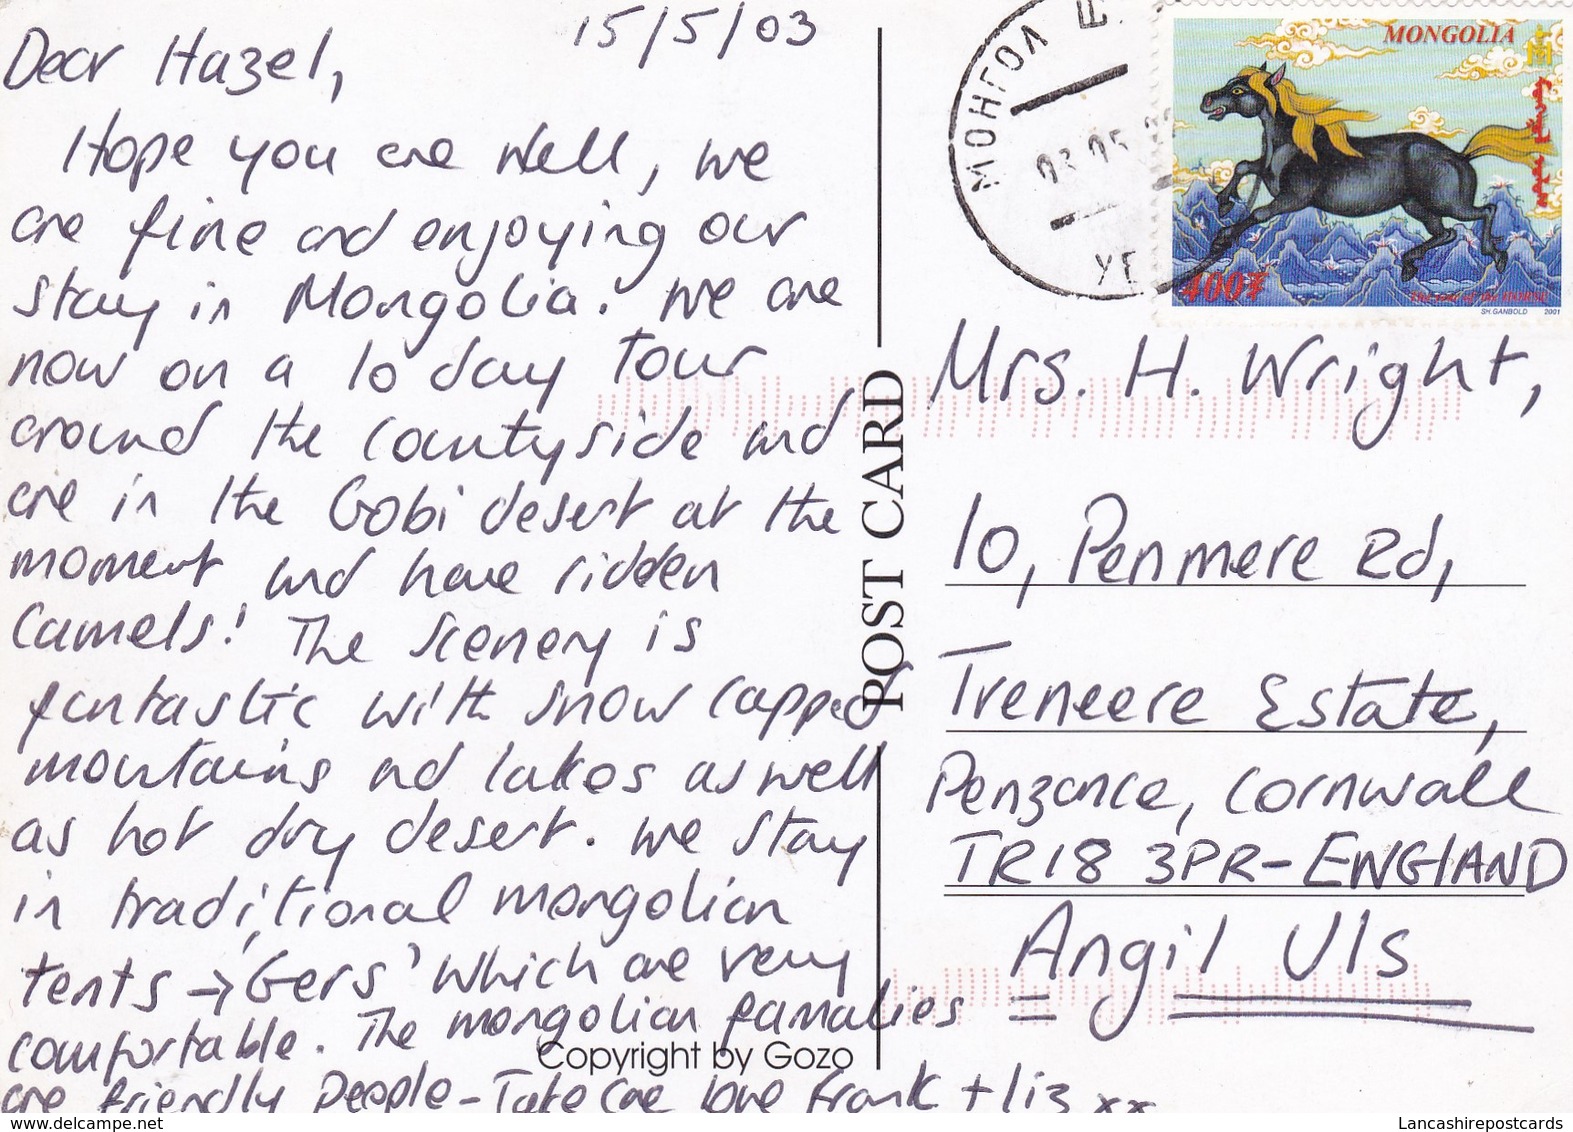 15/5/03
Dear Hazel,
Hope you are well, we
are fine and enjoying our
stay in Mongolia. We are
now on a 10 day tour
around the countyside and
are in the Gobi desert at the
moment and have ridden
camels! The scenery is
fantastic with snow capped
mountains and lakes as well
as hot dry desert. We stay
in traditional mongolian
tents → 'Gers' which are very
comfortable. The mongolian famalies
are friendly people - Take care love Frank + Liz xx
POST CARD
Copyright by Gozo
МОНГОЛ
03 05
MONGOLIA
400₮
The year of the HORSE
SH.GANBOLD 2001
Mrs. H. Wright,
10, Penmere Rd,
Treneere Estate,
Penzance, Cornwall
TR18 3PR - ENGLAND
= Angil Uls
www.delcampe.net
Lancashirepostcards